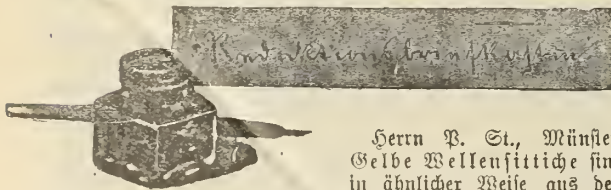 Redaktionsbriefkasten
Herrn P. St., Münste
Gelbe Wellensittiche sin
in ähnlicher Weise aus de